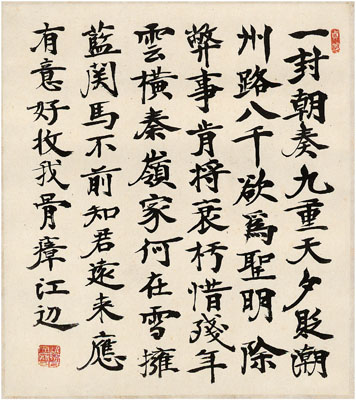 一封朝奏九重天夕貶潮
州路八千欲爲聖明除
弊事肯將衰朽惜殘年
雲橫秦嶺家何在雪擁
藍関馬不前知君遠来應
有意好收我骨瘴江辺